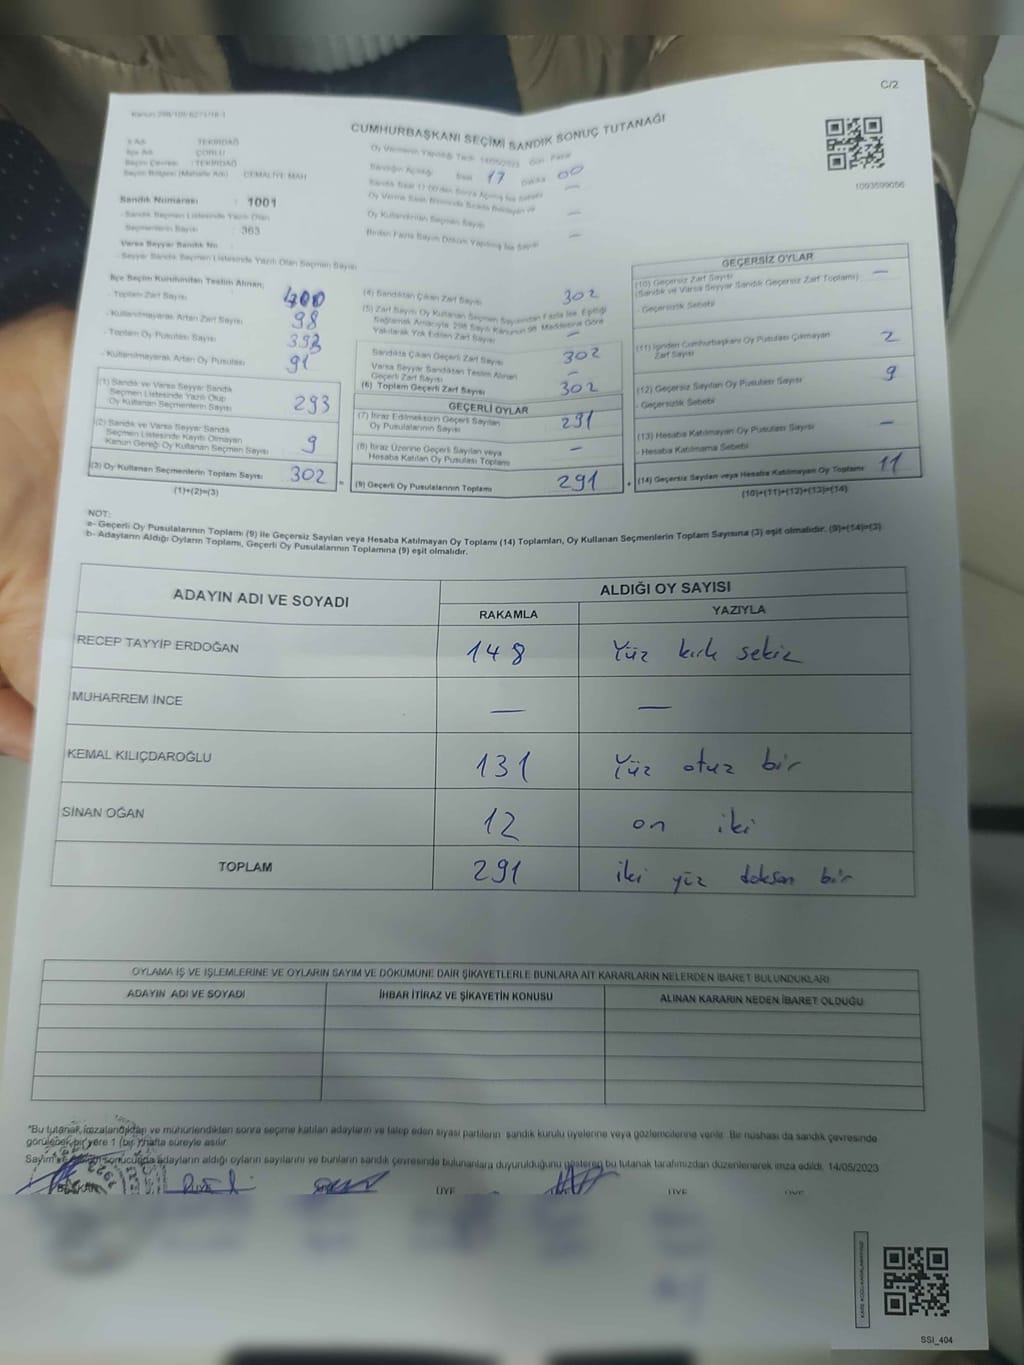 C/2
Kanun 298/105 6271/18-1
CUMHURBAŞKANI SEÇİMİ SANDIK SONUÇ TUTANAĞI
İl Adı : TEKİRDAĞ
İlçe Adı : ÇORLU
Seçim Çevresi : TEKİRDAĞ
Seçim Bölgesi (Mahalle Adı) CEMALİYE MAH
Sandık Numarası : 1001
- Sandık Seçmen Listesinde Yazılı Olan
Seçmenlerin Sayısı : 363
Varsa Seyyar Sandık No :
- Seyyar Sandık Seçmen Listesinde Yazılı Olan Seçmen Sayısı
Oy Vermenin Yapıldığı Tarih 14/05/2023 Gün: Pazar
Sandığın Açıldığı Saat 17 Dakika 00
Sandık Saat 17:00'den Sonra Açılmış İse Sebebi —
Oy Verme Saati Bitiminde Sırada Bekleyen ve
Oy Kullandırılan Seçmen Sayısı —
Birden Fazla Sayım Döküm Yapılmış İse Sayısı —
1093599056
İlçe Seçim Kurulundan Teslim Alınan;
- Toplam Zarf Sayısı 400
- Kullanılmayarak Artan Zarf Sayısı 98
- Toplam Oy Pusulası Sayısı 393
- Kullanılmayarak Artan Oy Pusulası 91
(1) Sandık ve Varsa Seyyar Sandık
Seçmen Listesinde Yazılı Olup
Oy Kullanan Seçmenlerin Sayısı 293
(2) Sandık ve Varsa Seyyar Sandık
Seçmen Listesinde Kayıtlı Olmayan
Kanun Gereği Oy Kullanan Seçmen Sayısı 9
(3) Oy Kullanan Seçmenlerin Toplam Sayısı 302
(1)+(2)=(3)
(4) Sandıktan Çıkan Zarf Sayısı 302
(5) Zarf Sayısı Oy Kullanan Seçmen Sayısından Fazla İse, Eşitliği
Sağlamak Amacıyla 298 Sayılı Kanunun 98. Maddesine Göre
Yakılarak Yok Edilen Zarf Sayısı —
Sandıkta Çıkan Geçerli Zarf Sayısı 302
Varsa Seyyar Sandıktan Teslim Alınan
Geçerli Zarf Sayısı —
(6) Toplam Geçerli Zarf Sayısı 302
GEÇERLİ OYLAR
(7) İtiraz Edilmeksizin Geçerli Sayılan
Oy Pusulalarının Sayısı 291
(8) İtiraz Üzerine Geçerli Sayılan veya
Hesaba Katılan Oy Pusulası Toplamı —
= (9) Geçerli Oy Pusulalarının Toplamı 291
GEÇERSİZ OYLAR
(10) Geçersiz Zarf Sayısı
(Sandık ve Varsa Seyyar Sandık Geçersiz Zarf Toplamı) —
- Geçersizlik Sebebi
(11) İçinden Cumhurbaşkanı Oy Pusulası Çıkmayan
Zarf Sayısı 2
(12) Geçersiz Sayılan Oy Pusulası Sayısı 9
- Geçersizlik Sebebi
(13) Hesaba Katılmayan Oy Pusulası Sayısı —
- Hesaba Katılmama Sebebi
+ (14) Geçersiz Sayılan veya Hesaba Katılmayan Oy Toplamı 11
(10)+(11)+(12)+(13)=(14)
NOT:
a- Geçerli Oy Pusulalarının Toplamı (9) ile Geçersiz Sayılan veya Hesaba Katılmayan Oy Toplamı (14) Toplamları, Oy Kullanan Seçmenlerin Toplam Sayısına (3) eşit olmalıdır. (9)+(14)=(3)
b- Adayların Aldığı Oyların Toplamı, Geçerli Oy Pusulalarının Toplamına (9) eşit olmalıdır.
ADAYIN ADI VE SOYADI ALDIĞI OY SAYISI
RAKAMLA YAZIYLA
RECEP TAYYİP ERDOĞAN 148 Yüz kırk sekiz
MUHARREM İNCE — —
KEMAL KILIÇDAROĞLU 131 Yüz otuz bir
SİNAN OĞAN 12 on iki
TOPLAM 291 iki yüz doksan bir
OYLAMA İŞ VE İŞLEMLERİNE VE OYLARIN SAYIM VE DÖKÜMÜNE DAİR ŞİKAYETLERLE BUNLARA AİT KARARLARIN NELERDEN İBARET BULUNDUKLARI
ADAYIN ADI VE SOYADI İHBAR İTİRAZ VE ŞİKAYETİN KONUSU ALINAN KARARIN NEDEN İBARET OLDUĞU
"Bu tutanak, imzalandıktan ve mühürlendikten sonra seçime katılan adayların ve talep eden siyasi partilerin sandık kurulu üyelerine veya gözlemcilerine verilir. Bir nüshası da sandık çevresinde
görülebilecek bir yere 1 (bir) hafta süreyle asılır.
Sayım ve döküm sonucunda adayların aldığı oyların sayılarını ve bunların sandık çevresinde bulunanlara duyurulduğunu gösteren bu tutanak tarafımızdan düzenlenerek imza edildi. 14/05/2023
BAŞKAN ÜYE ÜYE ÜYE ÜYE
SSI_404